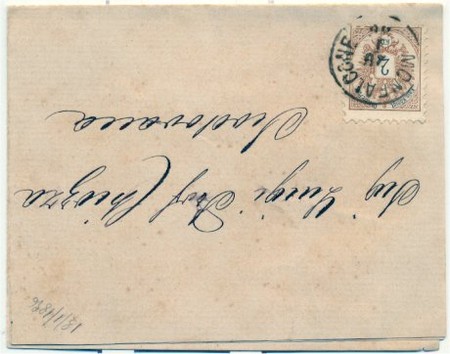 MONFALCONE
2
Sig Luigi Dr Chiozza
Scodovacca
13/1/1886